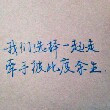 我们选择一起走
牵手彼此度余生